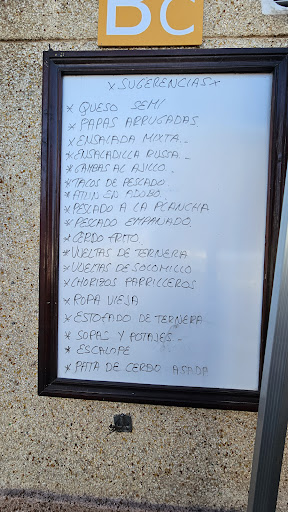 BC
*SUGERENCIAS*
* QUESO SEMI
* PAPAS ARRUGADAS
* ENSALADA MIXTA
* ENSALADILLA RUSA
* GAMBAS AL AJILLO
* TACOS DE PESCADO
* ATUN EN ADOBO
* PESCADO A LA PLANCHA
* PESCADO EMPANADO
* CERDO FRITO
* VUELTAS DE TERNERA
* VUELTAS DE SOLOMILLO
* CHORIZOS PARRILLEROS
* ROPA VIEJA
* ESTOFADO DE TERNERA
* SOPAS Y POTAJES
* ESCALOPE
* PATA DE CERDO ASADA